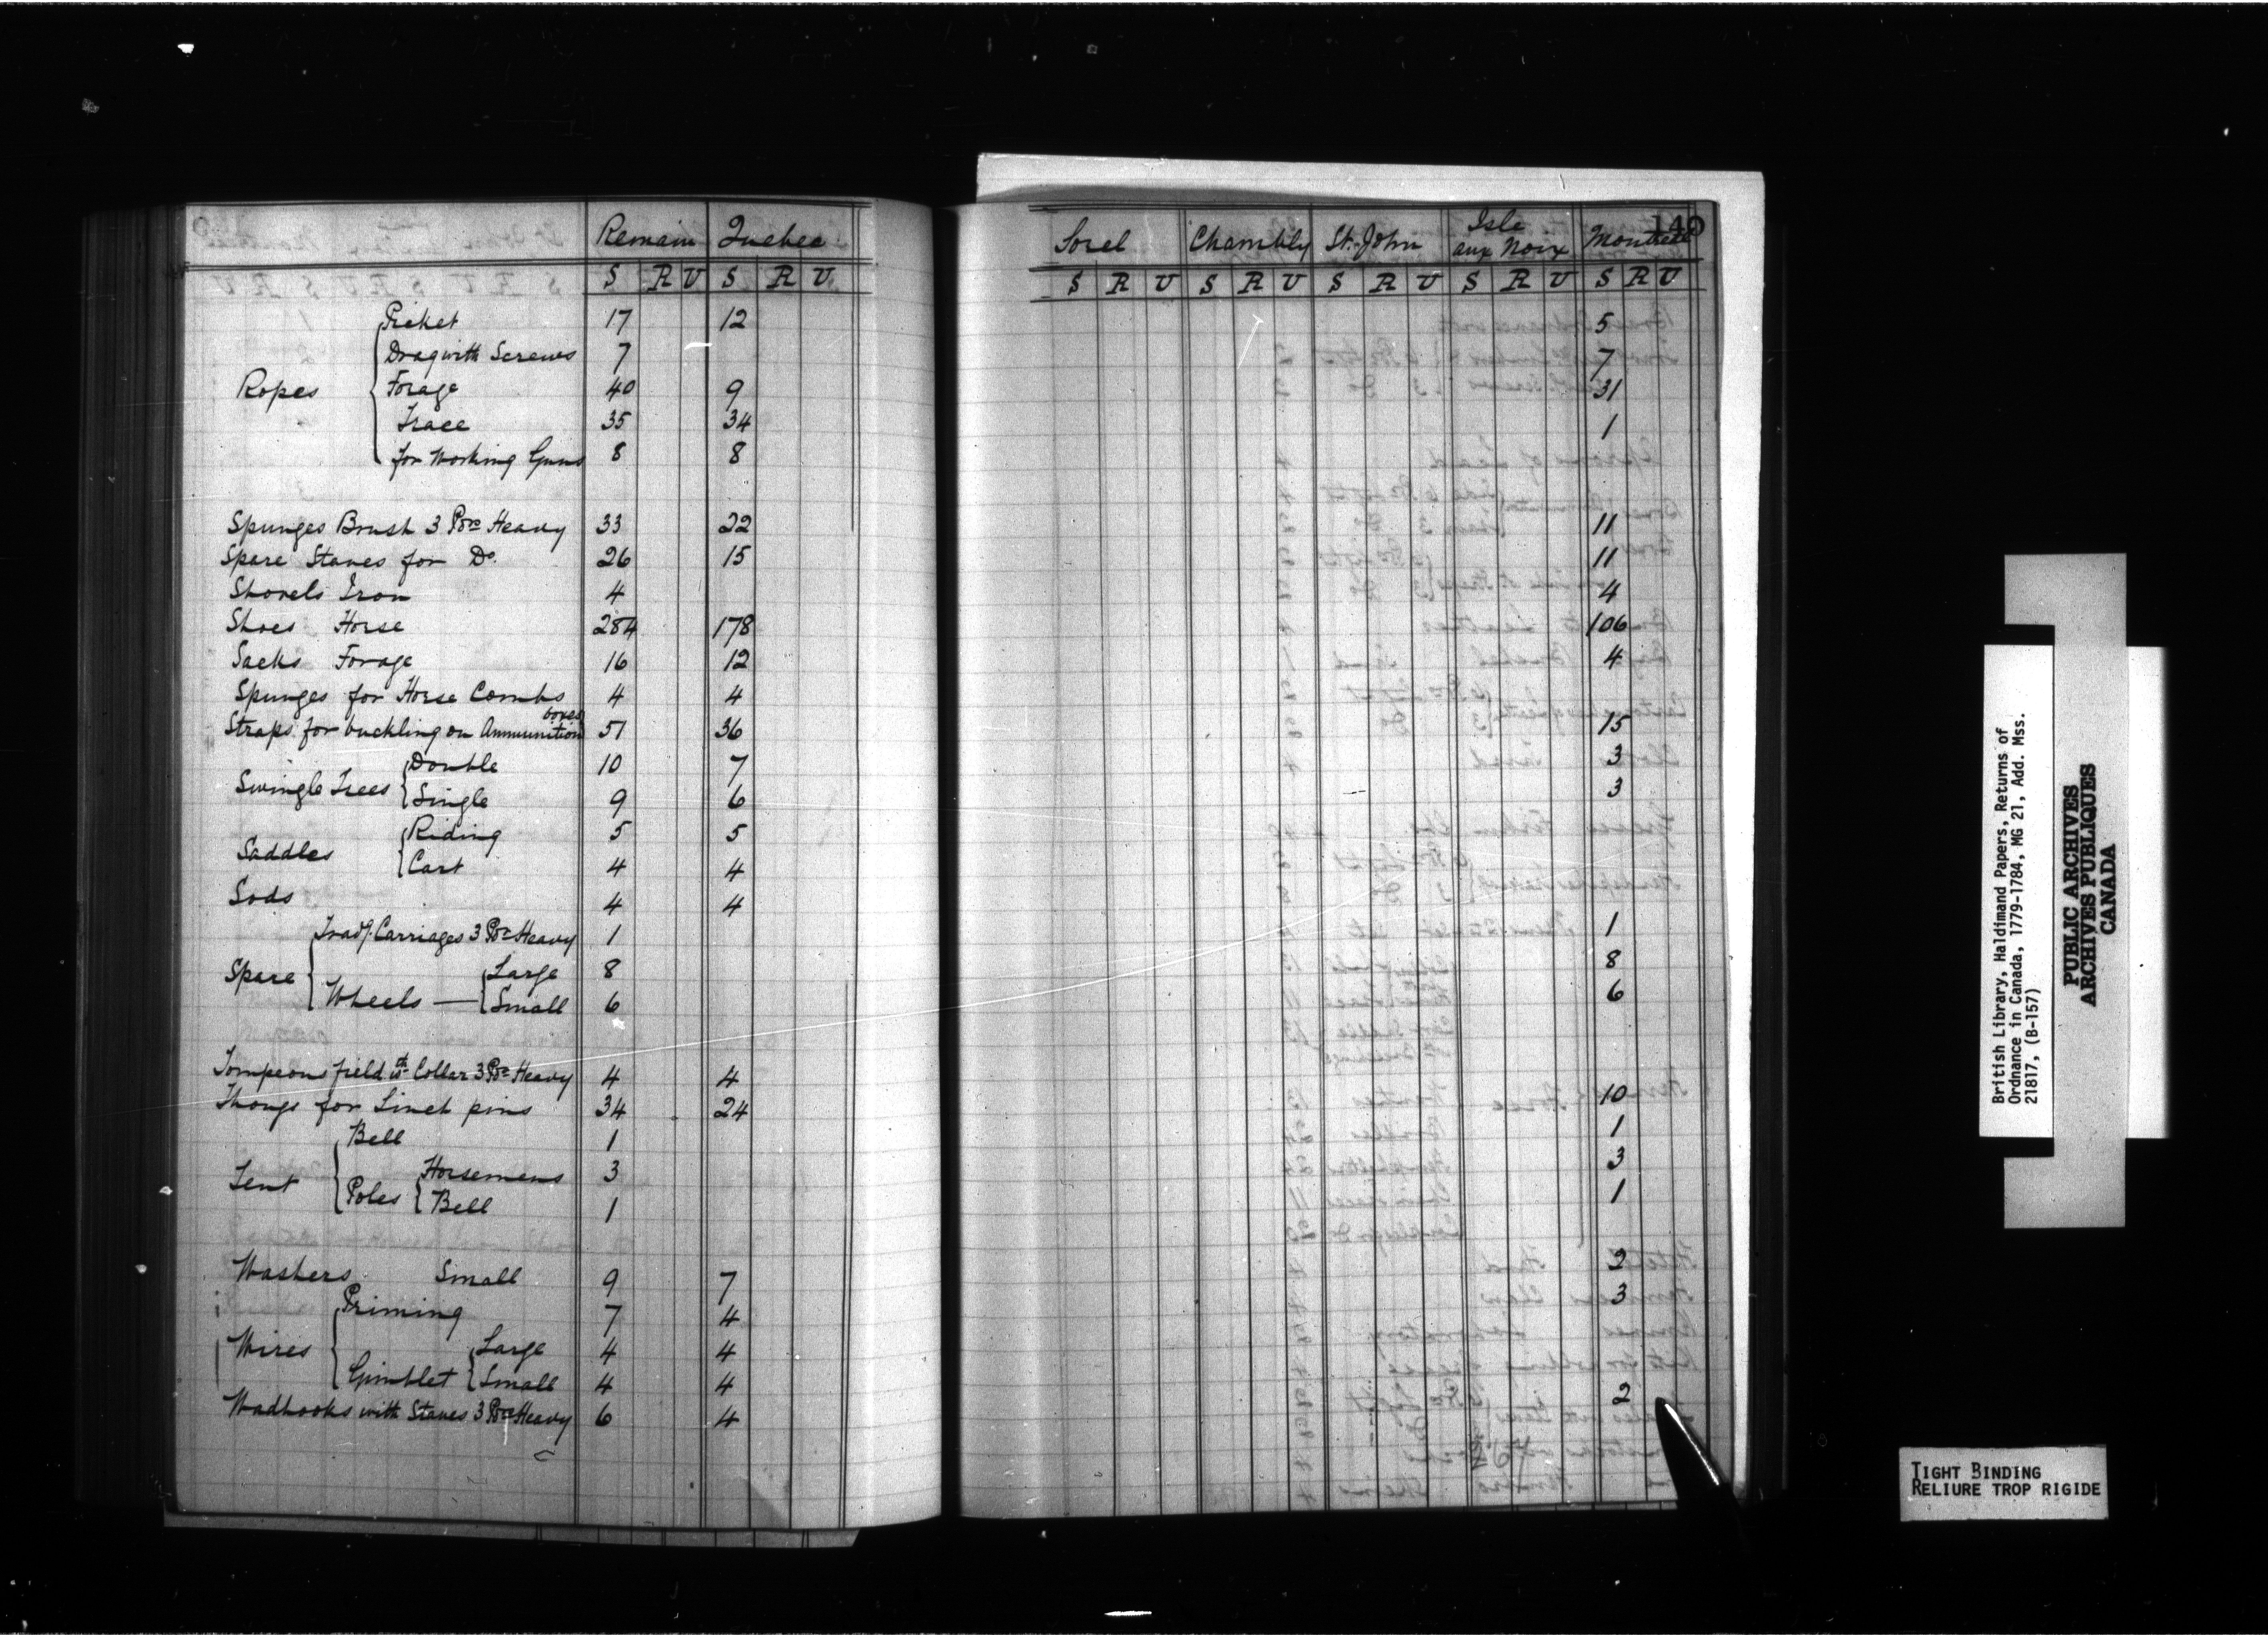 Remain Quebec
S R U S R U
Ropes
Picket 17 12
Drag with Screws 7
Forage 40 9
Trace 35 34
for Working Guns 8 8
Spunges Brush 3 Pdr Heavy 33 22
Spare Staves for Do. 26 15
Shovels Iron 4
Shoes Horse 284 178
Sacks Forage 16 12
Spunges for Horse Combs 4 4
boxes
Straps for buckling on Ammunition 51 36
Swingle Trees
Double 10 7
Single 9 6
Saddles
Riding 5 5
Cart 4 4
Sods 4 4
Spare
Carriages 3 Pdr Heavy 1
Wheels — Large 8
Small 6
Tompeons field wth Collar 3 Pdr Heavy 4 4
Thongs for Linch pins 34 24
Tent
Bell 1
Poles
Horsemens 3
Bell 1
Washers Small 9 7
Wires
Priming 7 4
Gimblet
Large 4 4
Small 4 4
Wadhooks with Staves 3 Pdr Heavy 6 4
140
Sorel Chambly St. John Isle aux Noix Montreal
S R U S R U S R U S R U S R U
5
7
31
1
11
11
4
106
4
15
3
3
1
8
6
10
1
3
1
2
3
2
British Library, Haldimand Papers, Returns of
Ordnance in Canada, 1779-1784, MG 21, Add. Mss.
21817, (B-157)
PUBLIC ARCHIVES
ARCHIVES PUBLIQUES
CANADA
TIGHT BINDING
RELIURE TROP RIGIDE